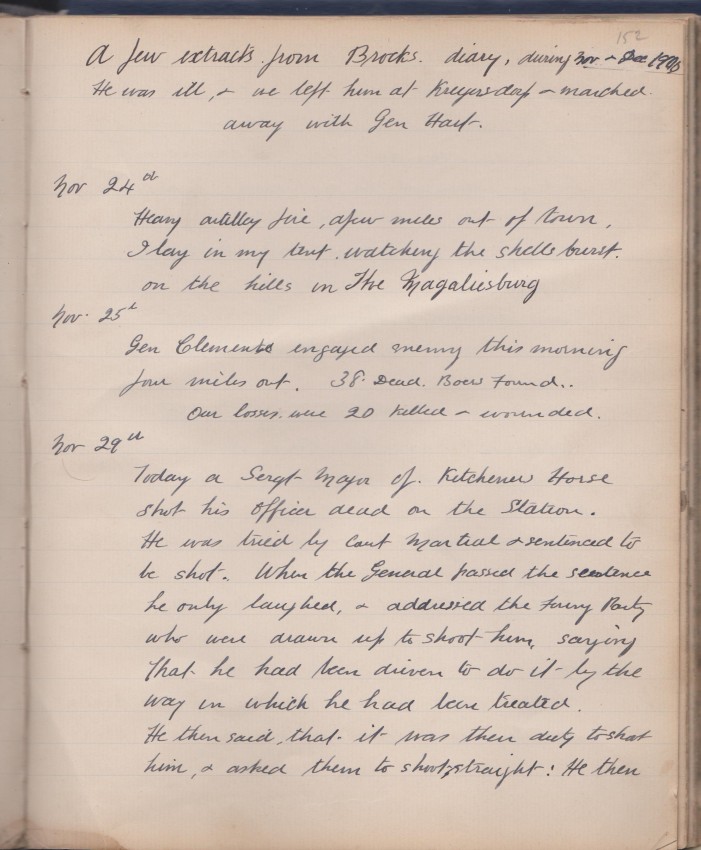 152
A few extracts from Brocks. diary, during Nov & Dec 1900
He was ill, & we left him at Krugersdorp & marched
away with Gen Hart.
Nov 24th
Heavy artillery fire, a few miles out of town,
I lay in my tent watching the shells burst.
on the hills in The Magaliesburg
Nov. 25th
Gen Clements engaged enemy this morning
four miles out. 38 Dead. Boers Found..
Our losses were 20 killed & wounded.
Nov 29th
Today a Sergt Major of Kitcheners Horse
shot his officer dead on the Station.
He was tried by Court Martial & sentenced to
be shot. When the General passed the sentence
he only laughed, & addressed the Firing Party
who were drawn up to shoot him, saying
that he had been driven to do it by the
way in which he had been treated.
He then said, that it was their duty to shoot
him, & asked them to shoot straight: He then